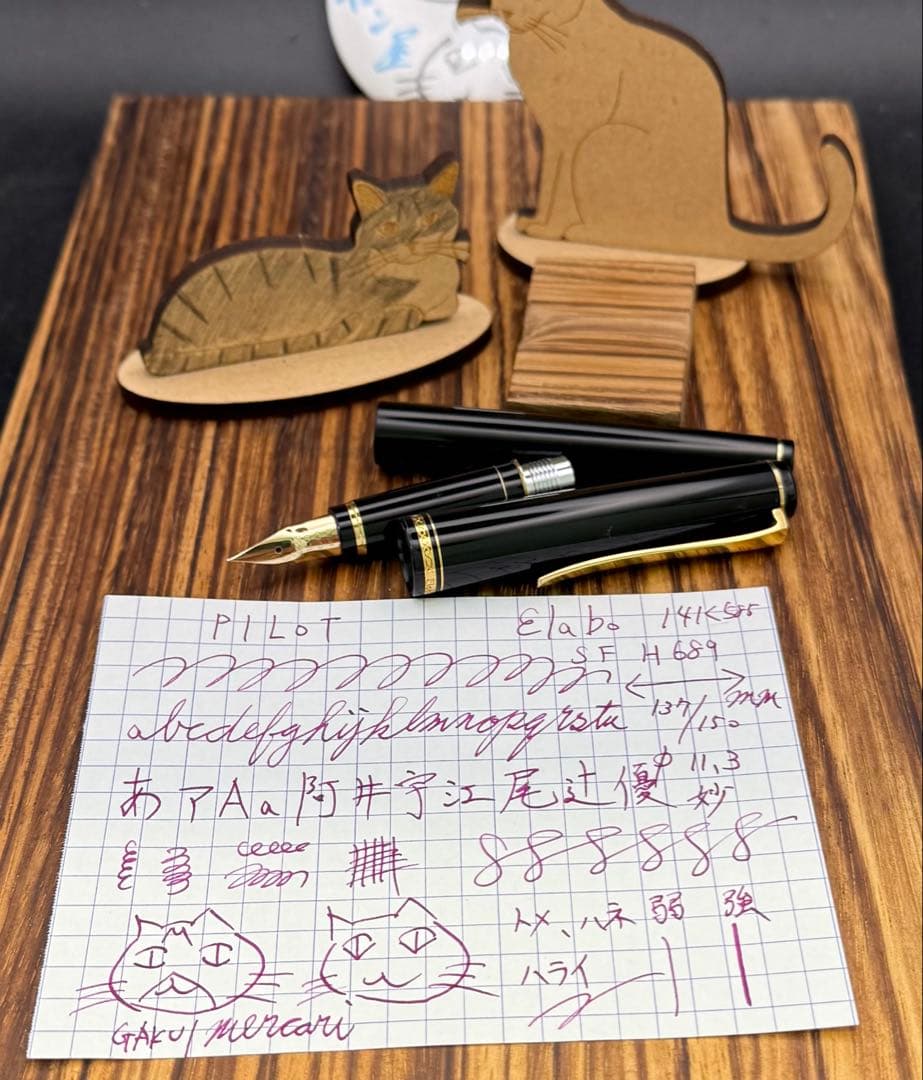 PILOT Elabo 14K585
SF H689
abcdefghijklmnopqrstu 137/150 mm
φ11,3
あアAa阿井宇江尾辻優 妙
トメ、ハネ 弱 強
ハライ
GAKU mercari